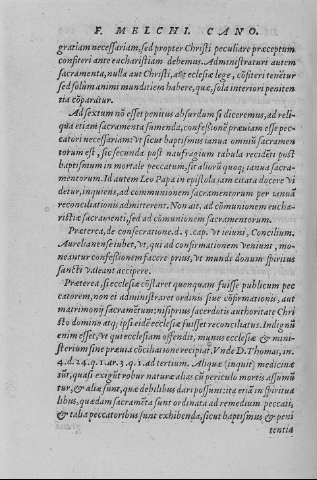 F. MELCHI. CANO.
gratiam necessariam, sed propter Christi peculiare præceptum
confiteri ante eucharistiam debemus. Administraturi autem
sacramenta, nulla aut Christi, atq; ecclesiæ lege, cōfiteri tenētur
sed solùm animi munditiem habere, quæ, sola interiori peniten
tia cōparatur.
Ad sextum nō esset penitus absurdum si diceremus, ad reli-
qua etiam sacramenta sumenda, confessionē præuiam esse pec-
catori necessariam: vt sicut baptismus ianua omniū sacramen
torum est, sic secunda post naufragium tabula recidēti post
baptismum in mortale peccatum, sit aliorū quoq; ianua sacra-
mentorum. Id autem Leo Papa in epistola iam citata docere vi
detur, inquiens, ad communionem sacramentorum per ianuā
reconciliationis admitterent. Non ait, ad cōmunionem eucha-
ristiæ sacramenti, sed ad cōmunionem sacramentorum.
Præterea, de consecratione. d. 5. cap. vt ieiuni, Concilium.
Aurelianense iubet, vt, qui ad confirmationem veniunt, mo-
neantur confessionem facere prius, vt mundi donum spiritus
sancti valeant accipere.
Præterea, si ecclesiæ cōstaret quenquam fuisse publicum pec
catorem, non ei administraret ordinis siue cōfirmationis, aut
matrimonij sacramētum: nisi prius sacerdotis authoritate Chri
sto domino atq; ipsi eidē ecclesiæ fuisset reconciliatus. Indignū
enim esset, vt qui ecclesiam offendit, munus ecclesiæ & mini-
sterium sine præuia cōciliatione recipiat. Vnde D. Thomas, in
4. d. 24. q. 1. ar. 3. q. 1. ad tertium. Aliquæ (inquit) medicinæ
sūt, quasi exigūt robur naturæ aliàs cū periculo mortis assumū
tur, & aliæ sunt, quæ debilibus dari possunt: ita etiā in spiritua
libus, quædam sacramēta sunt ordinata ad remedium peccati,
& talia peccatoribus sunt exhibenda, sicut baptismus & peni
tentia